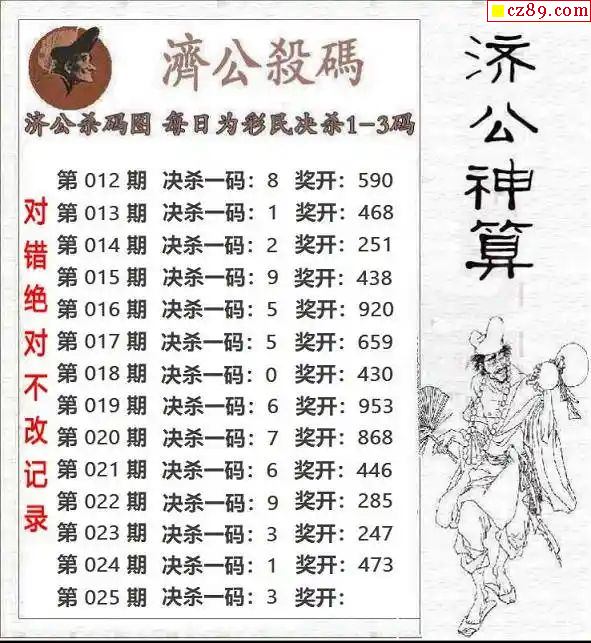 cz89.com
濟公殺碼
济公杀码图 每日为彩民决杀1-3码
第 012 期 决杀一码：8 奖开：590
第 013 期 决杀一码：1 奖开：468
第 014 期 决杀一码：2 奖开：251
第 015 期 决杀一码：9 奖开：438
第 016 期 决杀一码：5 奖开：920
第 017 期 决杀一码：5 奖开：659
第 018 期 决杀一码：0 奖开：430
第 019 期 决杀一码：6 奖开：953
第 020 期 决杀一码：7 奖开：868
第 021 期 决杀一码：6 奖开：446
第 022 期 决杀一码：9 奖开：285
第 023 期 决杀一码：3 奖开：247
第 024 期 决杀一码：1 奖开：473
第 025 期 决杀一码：3 奖开：
对错绝对不改记录
济公神算